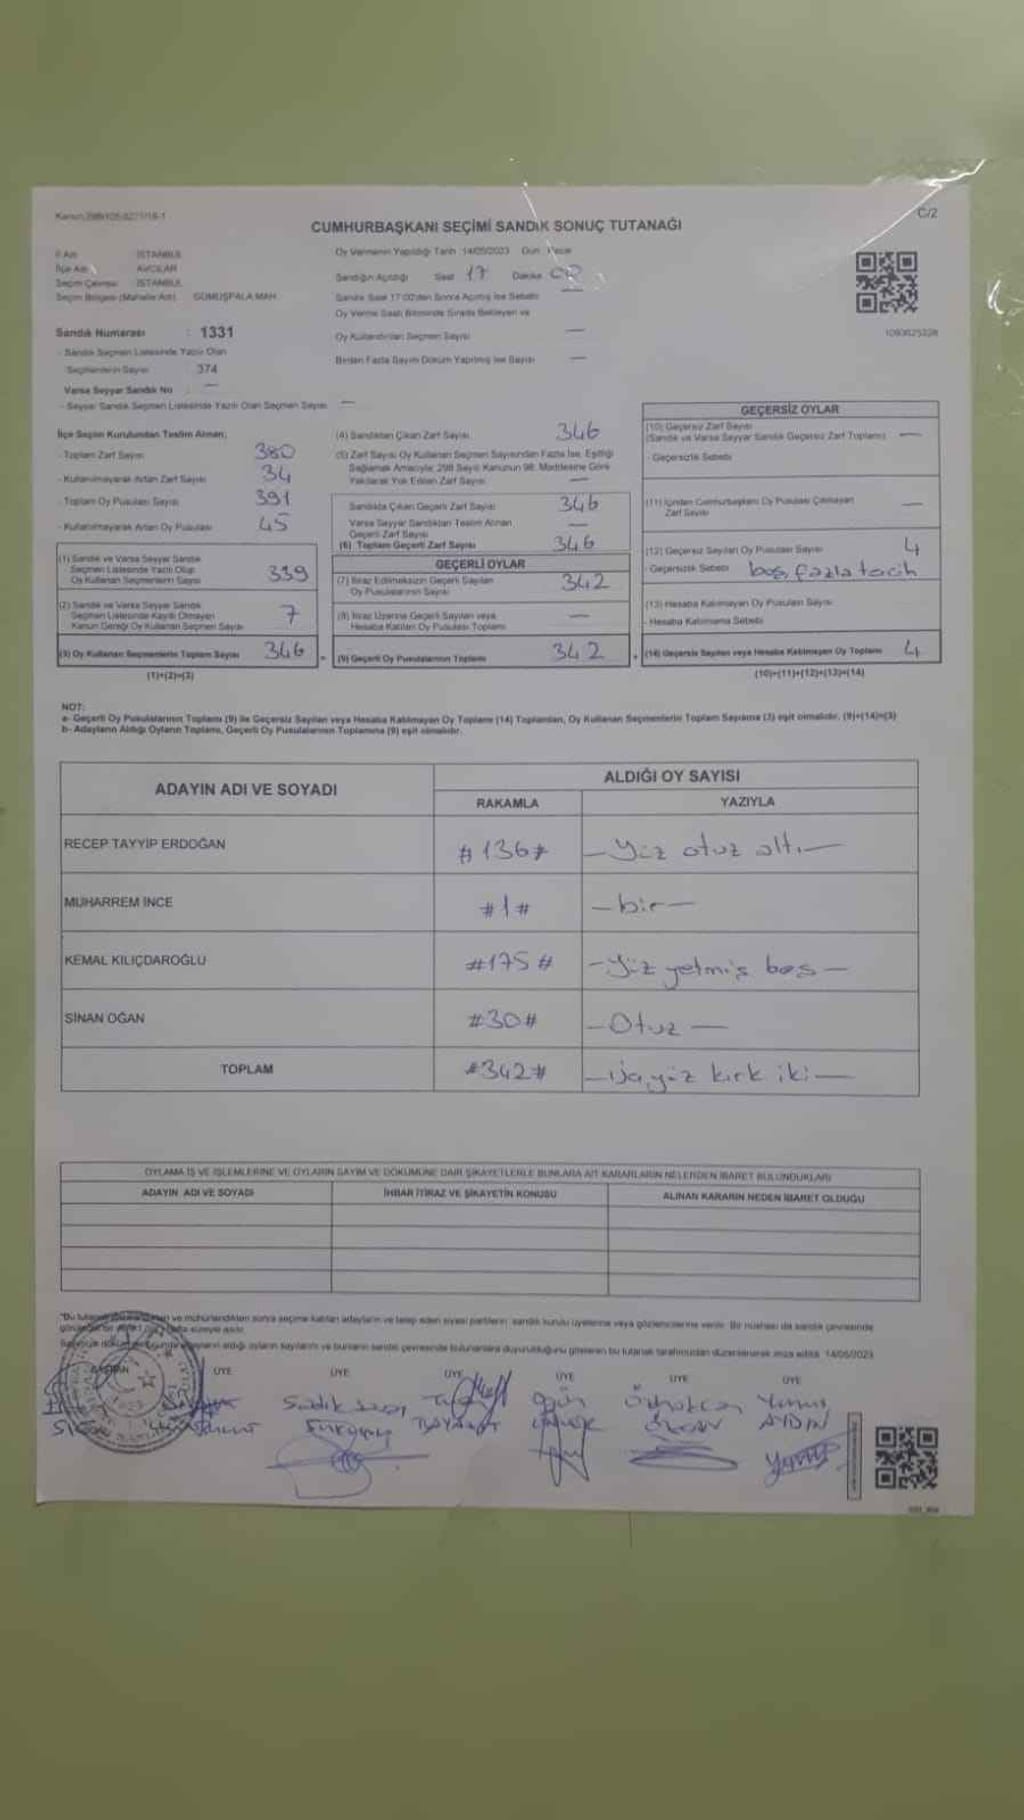 Kanun:298/105-6271/18-1
C/2
CUMHURBAŞKANI SEÇİMİ SANDIK SONUÇ TUTANAĞI
İl Adı : İSTANBUL
İlçe Adı : AVCILAR
Seçim Çevresi : İSTANBUL
Seçim Bölgesi (Mahalle Adı) : GÜMÜŞPALA MAH.
Oy Vermenin Yapıldığı Tarih : 14/05/2023 Gün : Pazar
Sandığın Açıldığı Saat 17 Dakika
Sandık Saat 17:00'den Sonra Açılmış İse Sebebi
Oy Verme Saati Bitiminde Sırada Bekleyen ve
Oy Kullandırılan Seçmen Sayısı —
Birden Fazla Sayım Döküm Yapılmış İse Sayısı —
Sandık Numarası : 1331
- Sandık Seçmen Listesinde Yazılı Olan
Seçmenlerin Sayısı 374
Varsa Seyyar Sandık No : —
- Seyyar Sandık Seçmen Listesinde Yazılı Olan Seçmen Sayısı —
İlçe Seçim Kurulundan Teslim Alınan;
- Toplam Zarf Sayısı 380
- Kullanılmayarak Artan Zarf Sayısı 34
- Toplam Oy Pusulası Sayısı 391
- Kullanılmayarak Artan Oy Pusulası 45
(1) Sandık ve Varsa Seyyar Sandık
Seçmen Listesinde Yazılı Olup
Oy Kullanan Seçmenlerin Sayısı 339
(2) Sandık ve Varsa Seyyar Sandık
Seçmen Listesinde Kayıtlı Olmayan
Kanun Gereği Oy Kullanan Seçmen Sayısı 7
(3) Oy Kullanan Seçmenlerin Toplam Sayısı 346
(1)+(2)=(3)
(4) Sandıktan Çıkan Zarf Sayısı 346
(5) Zarf Sayısı Oy Kullanan Seçmen Sayısından Fazla İse, Eşitliği
Sağlamak Amacıyla; 298 Sayılı Kanunun 98. Maddesine Göre
Yakılarak Yok Edilen Zarf Sayısı —
Sandıkta Çıkan Geçerli Zarf Sayısı 346
Varsa Seyyar Sandıktan Teslim Alınan
Geçerli Zarf Sayısı —
(6) Toplam Geçerli Zarf Sayısı 346
GEÇERLİ OYLAR
(7) İtiraz Edilmeksizin Geçerli Sayılan
Oy Pusulalarının Sayısı 342
(8) İtiraz Üzerine Geçerli Sayılan veya
Hesaba Katılan Oy Pusulası Toplamı —
(9) Geçerli Oy Pusulalarının Toplamı 342
GEÇERSİZ OYLAR
(10) Geçersiz Zarf Sayısı
(Sandık ve Varsa Seyyar Sandık Geçersiz Zarf Toplamı) —
- Geçersizlik Sebebi
(11) İçinden Cumhurbaşkanı Oy Pusulası Çıkmayan
Zarf Sayısı —
(12) Geçersiz Sayılan Oy Pusulası Sayısı 4
- Geçersizlik Sebebi boş, fazla tercih
(13) Hesaba Katılmayan Oy Pusulası Sayısı
- Hesaba Katılmama Sebebi
(14) Geçersiz Sayılan veya Hesaba Katılmayan Oy Toplamı 4
(10)+(11)+(12)+(13)=(14)
NOT:
a- Geçerli Oy Pusulalarının Toplamı (9) ile Geçersiz Sayılan veya Hesaba Katılmayan Oy Toplamı (14) Toplamları, Oy Kullanan Seçmenlerin Toplam Sayısına (3) eşit olmalıdır. (9)+(14)=(3)
b- Adayların Aldığı Oyların Toplamı, Geçerli Oy Pusulalarının Toplamına (9) eşit olmalıdır.
ADAYIN ADI VE SOYADI
ALDIĞI OY SAYISI
RAKAMLA YAZIYLA
RECEP TAYYİP ERDOĞAN #136# —Yüz otuz altı—
MUHARREM İNCE #1# —bir—
KEMAL KILIÇDAROĞLU #175# —Yüz yetmiş beş—
SİNAN OĞAN #30# —Otuz—
TOPLAM #342# —Üçyüz kırk iki—
OYLAMA İŞ VE İŞLEMLERİNE VE OYLARIN SAYIM VE DÖKÜMÜNE DAİR ŞİKAYETLERLE BUNLARA AİT KARARLARIN NELERDEN İBARET BULUNDUKLARI
ADAYIN ADI VE SOYADI İHBAR İTİRAZ VE ŞİKAYETİN KONUSU ALINAN KARARIN NEDEN İBARET OLDUĞU
ve mühürlendikten sonra seçime katılan adayların ve talep eden siyasi partilerin sandık kurulu üyelerine veya gözlemcilerine verilir. Bir nüshası da sandık çevresinde
aldığı oyların sayılarını ve bunların sandık çevresinde bulunanlara duyurulduğunu gösteren bu tutanak tarafımızdan düzenlenerek imza edildi. 14/05/2023
ÜYE ÜYE ÜYE ÜYE ÜYE ÜYE
Sadık Yunus
ÖZKAN AYDIN